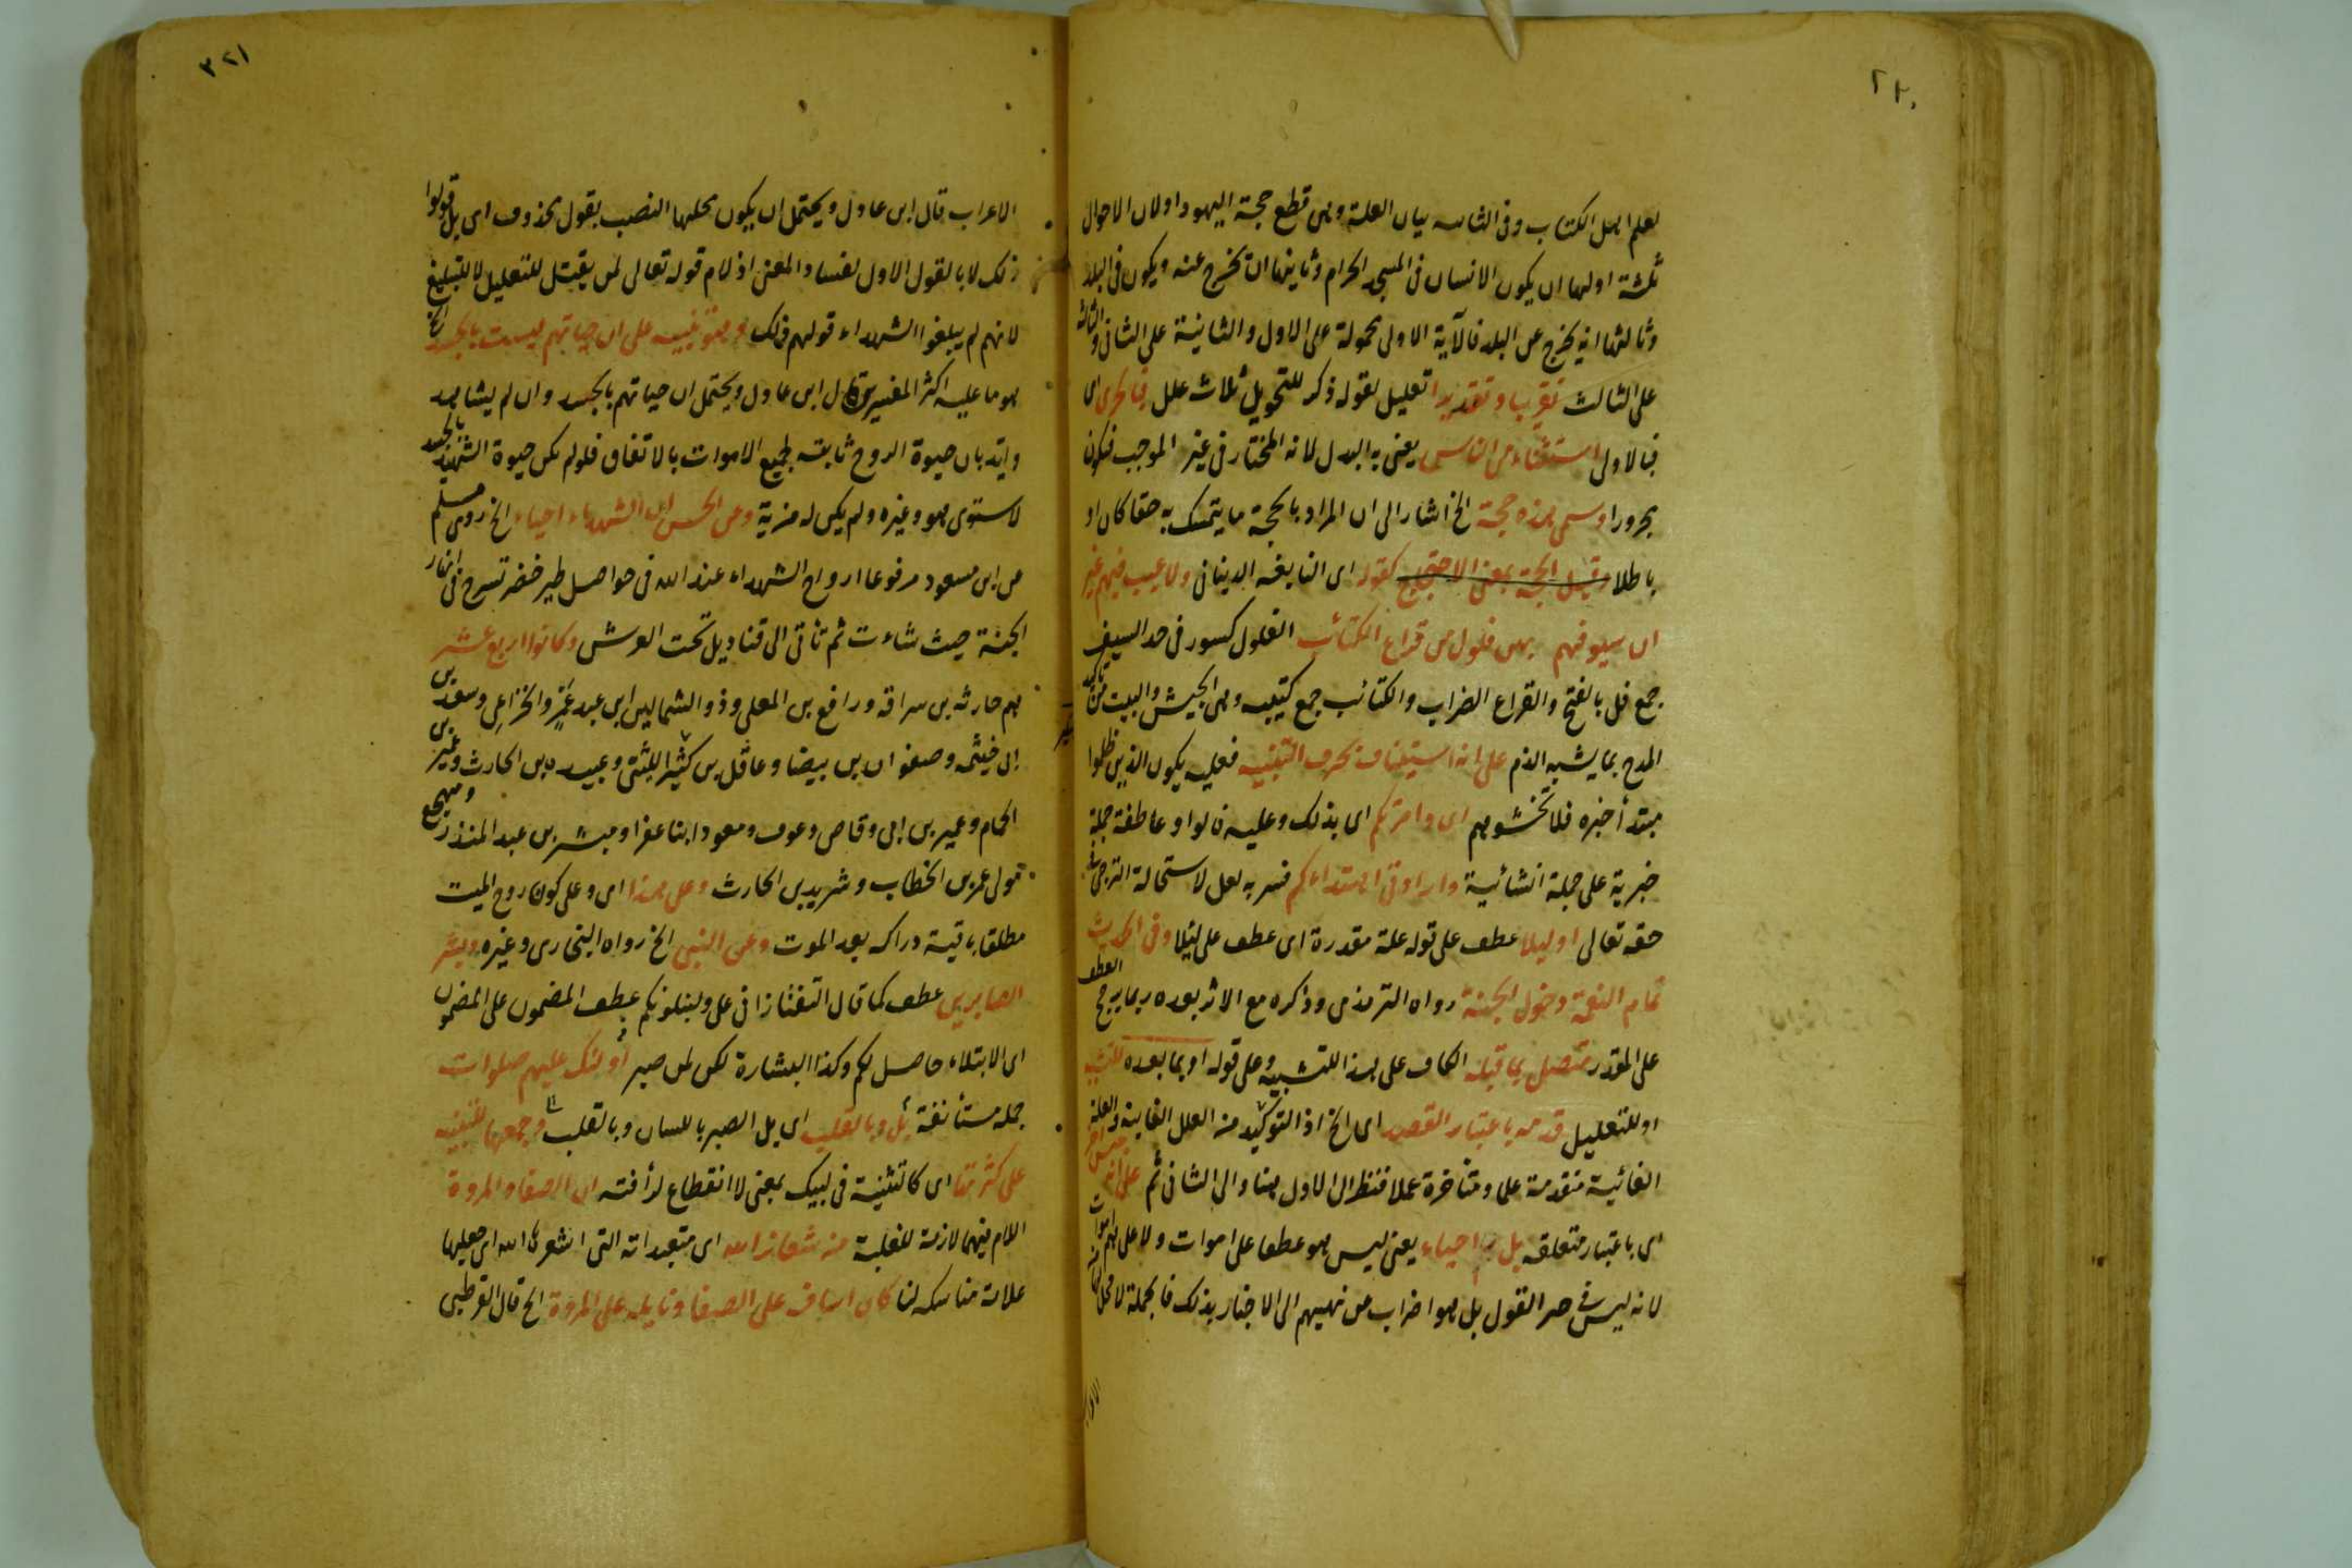 ٢٢٠
لعلم اهل الكتاب وفى الثالثه بيان العلة وهى قطع حجة اليهود اولان الاحوال
ثلثة اولها ان يكون الانسان فى المسجد الحرام وثانيها ان يخرج عنه ويكون فى البلد
وثالثها انه يخرج عن البلد فالآية الاولى محمولة على الاول والثانية على الثانى والثالثة
على الثالث تقريب وتقديرا تعليل لقوله ذكر للتحويل ثلاث علل فبالحرى اى
فبالاولى استثناء من الناس يعنى به البدل لانه المختار فى غير الموجب فيكون
مجرورا وسمى هذه حجة الخ اشار الى ان المراد بالحجة ما يتمسك به حقا كان او
باطلا وقيل الحجة بمعنى الاحتجاج كقوله اى النابغه الذبيانى ولا عيب فيهم غير
ان سيوفهم بهن فلول من قراع الكتائب الفلول كسور فى حد السيف
جمع فل بالفتح والقراع الضراب والكتائب جمع كتيبه وهى الجيش والبيت من تأكيد
المدح بما يشبه الذم على انه استيناف بحرف التنبيه فعليه يكون الذين ظلموا
مبتدأ خبره فلا تخشوهم اى وامرتكم اى بذلك وعليه فالواو عاطفة جملة
خبرية على جملة انشائية وارادتى اهتداءكم فسر به لعل لاستحالة الترجى فى
حقه تعالى او ليلا عطف على قوله علة مقدرة اى عطف على لئلا وفى الحديث
تمام النعمة دخول الجنة رواه الترمذى وذكره مع الاثر بعده ربما يرجح العطف
على المقدر متصل بما قبله الكاف على هذا للتشبيه وعلى قوله او بما بعده للتشبيه
او للتعليل قدمه باعتبار القصد اى الخ اذ التوكيد من العلل الغاييه والعلة
الغائية متقدمة علما ومتأخرة عملا فنظر الى الاول هنا والى الثانى ثم على انه
اى باعتبار متعلقه بل هم احياء يعنى ليس هو عطفا على اموات ولا على هم اموات
لانه ليس فى حيز القول بل هو اضراب عن نهيهم الى الاخبار بذلك فالجملة لا محل لها من
الاعراب
٣٢١
الاعراب قال ابن عادل ويحتمل ان يكون محلها النصب بقول محذوف اى بل قولوا
ذلك لا بالقول الاول لفساد المعنى اذ لام قوله تعالى لمن يقتل للتعليل لا للتبليغ
لانهم لم يبلغوا الشهداء قولهم ذلك وهو تنبيه على ان حياتهم ليست بالجسد الخ
هو ما عليه اكثر المفسرين قال ابن عادل ويحتمل ان حياتهم بالجسد وان لم يشاهد
وايد بان حيوة الروح ثابته لجميع الاموات بالاتفاق فلو لم يكن حيوة الشهيد بالجسد
لاستوى هو وغيره ولم يكن له مزية وعن الحسن ان الشهداء احياء الخ روى مسلم
عن ابن مسعود مرفوعا ارواح الشهداء عند الله فى حواصل طير خضر تسرح فى انهار
الجنة حيث شاءت ثم تأتى الى قناديل تحت العرش وكانوا اربع عشر
هم حارثه بن سراقه ورافع بن المعلى وذو الشمالين ابن عبد عمرو الخزاعى وسعد بن
ابى خيثمه وصفوان بن بيضا وعاقل بن كثير الليثى وعبيده بن الحارث وعمير بن
الحمام وعمير بن ابى وقاص وعوف ومعود ابنا عفرا ومبشر بن عبد المنذر ومهجع
مولى عمر بن الخطاب ويزيد بن الحارث وعلى هذا اى وعلى كون روح الميت
مطلقا باقية دراكه بعد الموت وعن النبى الخ رواه البخارى وغيره وبشر
الصابرين عطف كما قال التفتازانى على ولنبلونكم عطف المضمون على المضمون
اى الابتلاء حاصل لكم وكذا البشارة لكن لمن صبر اولئك عليهم صلوات
جمله مستأنفة بل وبالقلب اى بل الصبر باللسان وبالقلب وجمعها للتنبيه
على كثرتها اى كالتثنية فى لبيك بمعنى لا انقطاع لرأفته ان الصفا والمروة
اللام فيهما لازمة للغلبة من شعائر الله اى متعبداته التى اشعرها الله اى جعلها
علامة مناسكه لنا كان اساف على الصفا ونايله على المروة الخ قال القرطبى